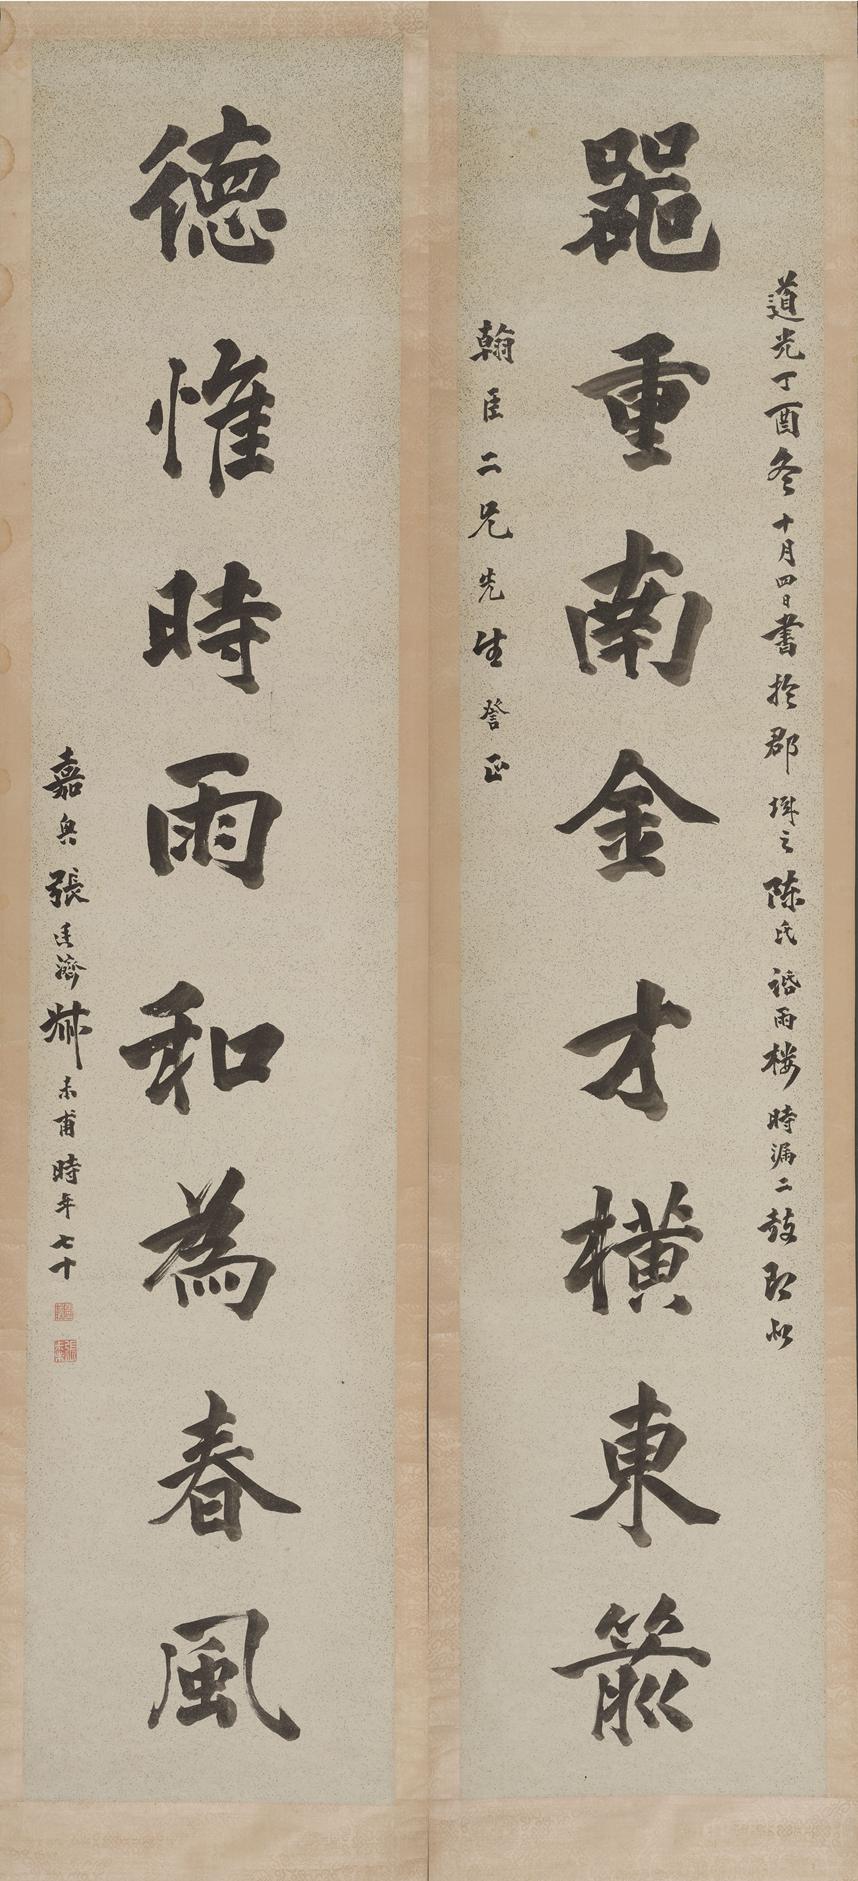 道光丁酉冬十月四日書於郡城之陳氏話雨樓時漏二鼓
器重南金才橫東箭
翰臣二兄先生詧正
德惟時雨和為春風
嘉興張廷濟尗未甫時年七十